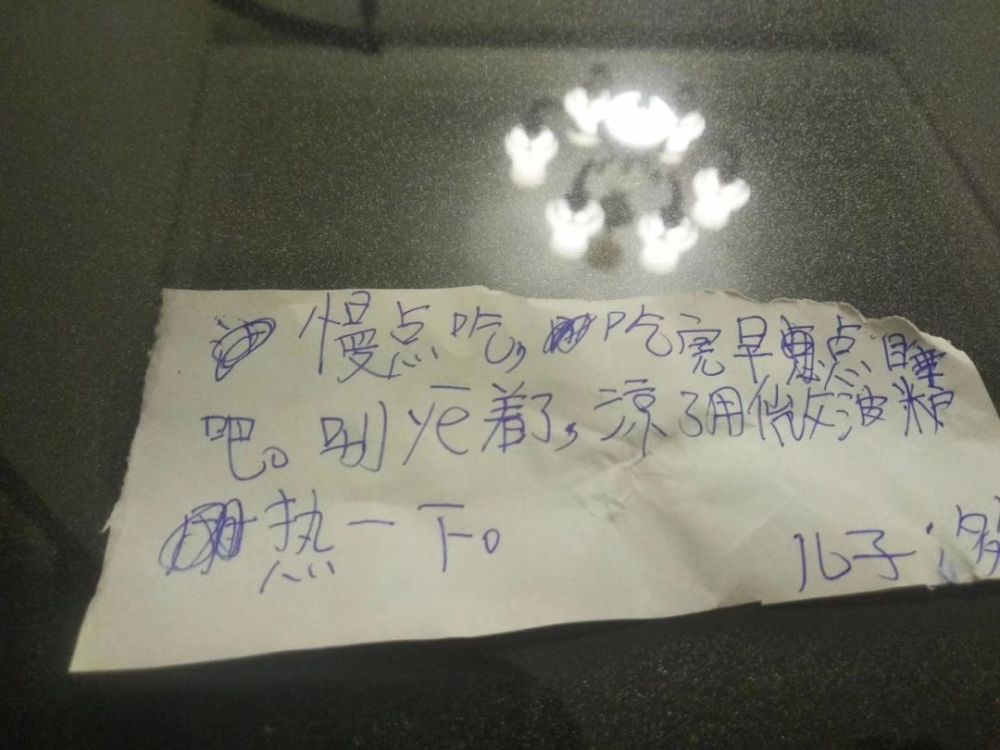 慢点吃,吃完早点睡
吧。别死着了,凉了用微波炉
热一下。
儿子: